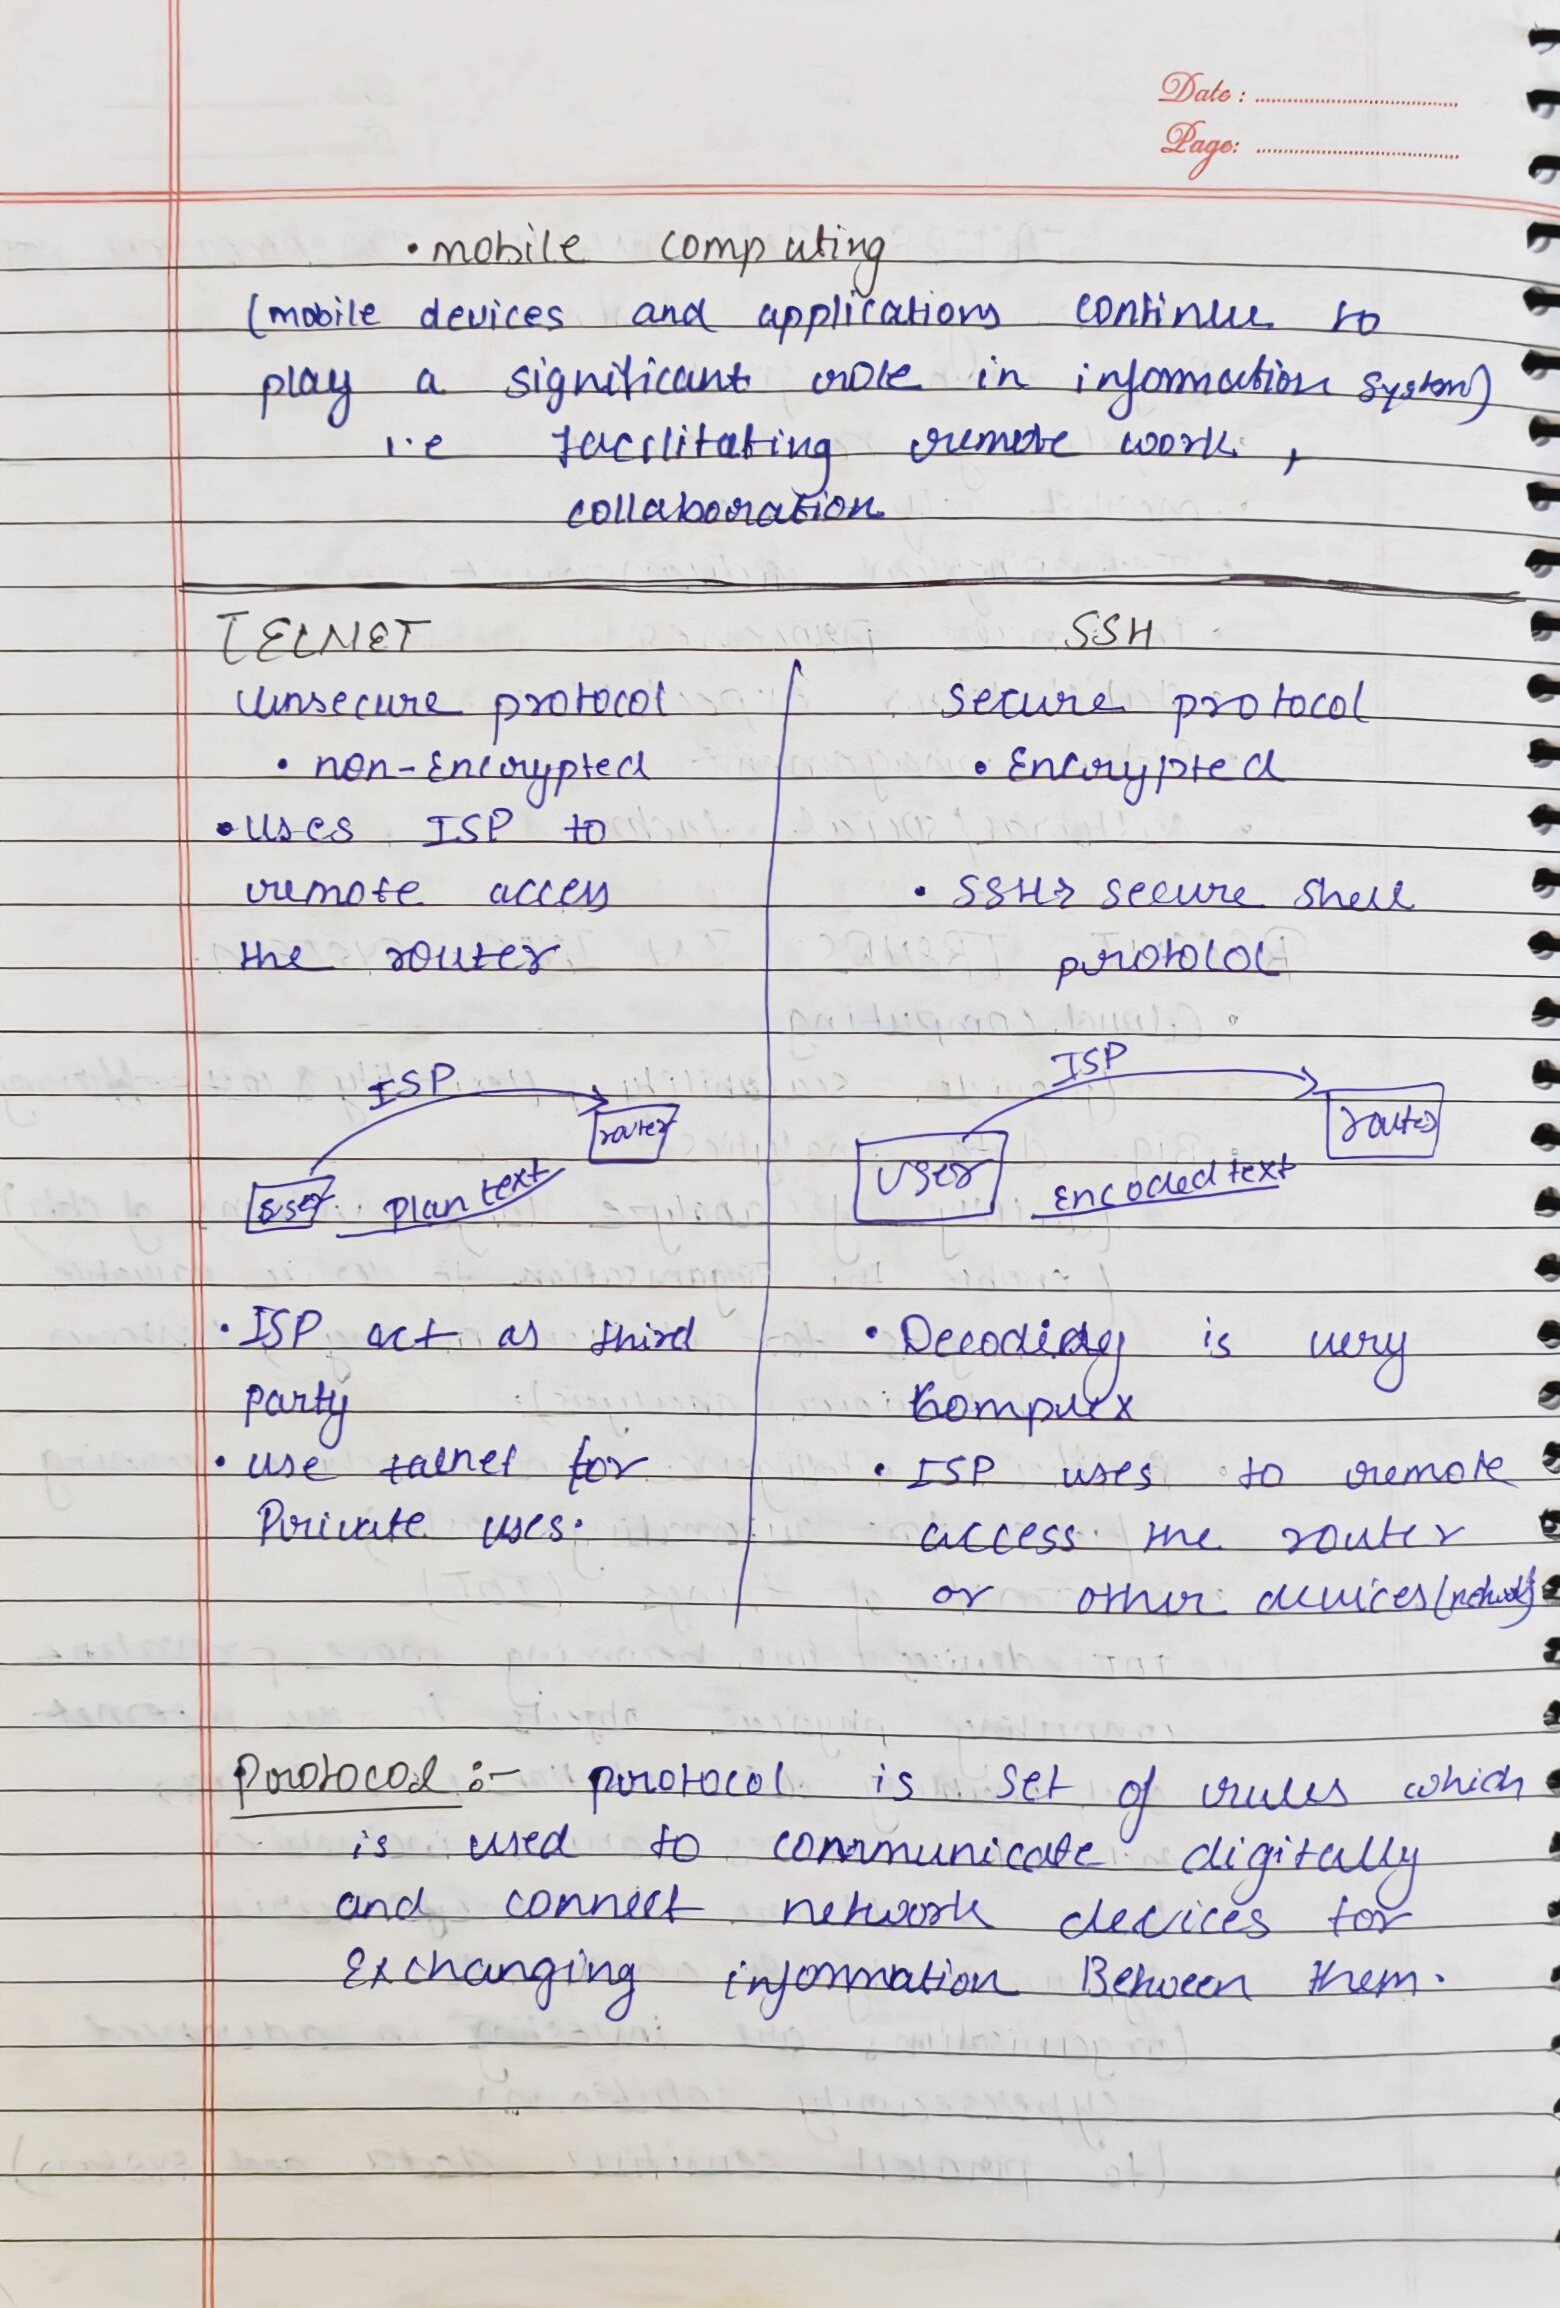 Date :
Page:
• mobile computing
(mobile devices and applications continue to
play a significant role in information system)
i.e facilitating remote work,
collaboration
TELNET
Unsecure protocol
• non-Encrypted
• uses ISP to
remote access
the router
ISP
router
user
plan text
• ISP act as third
party
• use talnet for
Private uses.
SSH
Secure protocol
• Encrypted
• SSH→ secure shell
protocol
ISP
router
user
Encoded text
• Decoding is very
Complex
• ISP uses to remote
access the router
or other devices (network)
Protocol :- protocol is set of rules which
is used to communicate digitally
and connect network devices for
Exchanging information Between them.